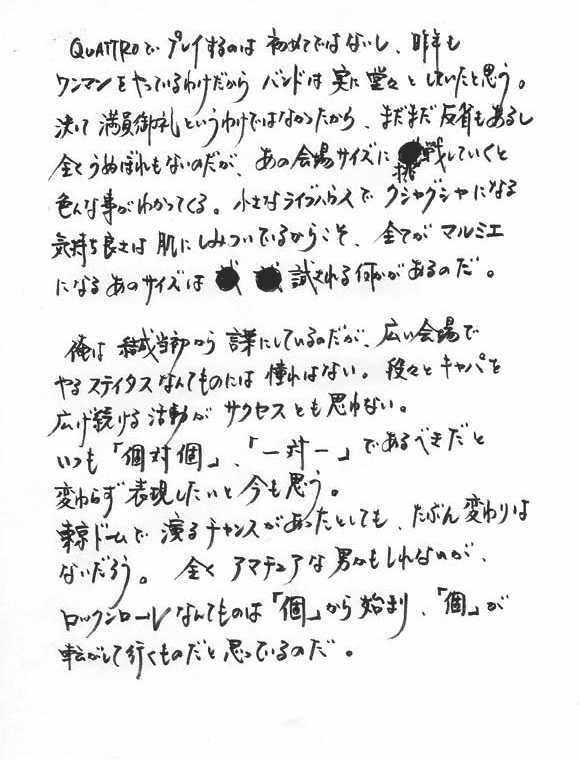 QUATTROでプレイするのは初めてではないし、昨年も
ワンマンをやっているわけだからバンドは実に堂々としていたと思う。
決して満員御礼というわけではなかったから、まだまだ反省もあるし
全くうぬぼれもないのだが、あの会場サイズに挑戦していくと
色んな事がわかってくる。小さなライブハウスでグシャグシャになる
気持ち良さは肌にしみついているからこそ、全てがマルミエ
になるあのサイズは試される何かがあるのだ。
俺は結成当初から言葉にしているのだが、広い会場で
やるステイタスなんてものには憧れはない。段々とキャパを
広げ続ける活動がサクセスとも思わない。
いつも「個対個」、「一対一」であるべきだと
変わらず表現したいと今も思う。
東京ドームで演るチャンスがあったとしても、たぶん変わりは
ないだろう。全くアマチュアな男かもしれないが、
ロックンロールなんてものは「個」から始まり、「個」が
転がして行くものだと思っているのだ。